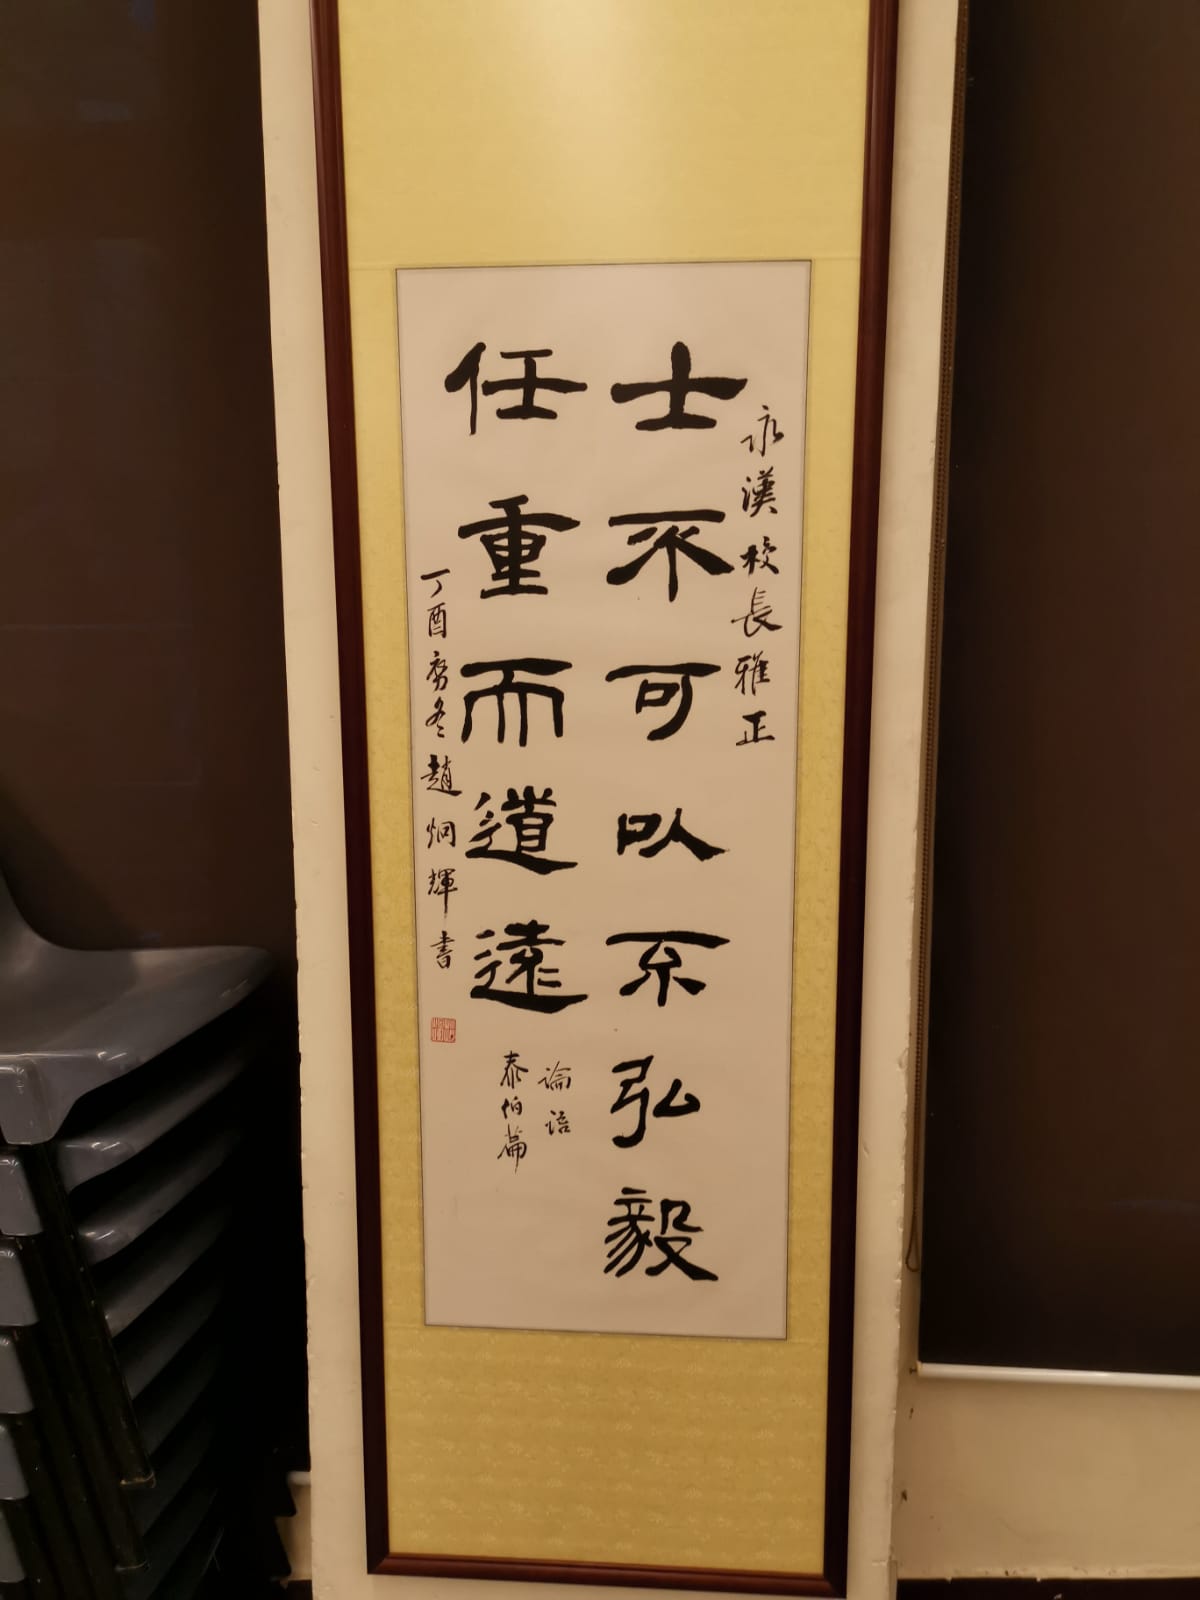 永漢校長雅正
士不可以不弘毅
任重而道遠
論語
泰伯篇
丁酉秀冬趙炯輝書